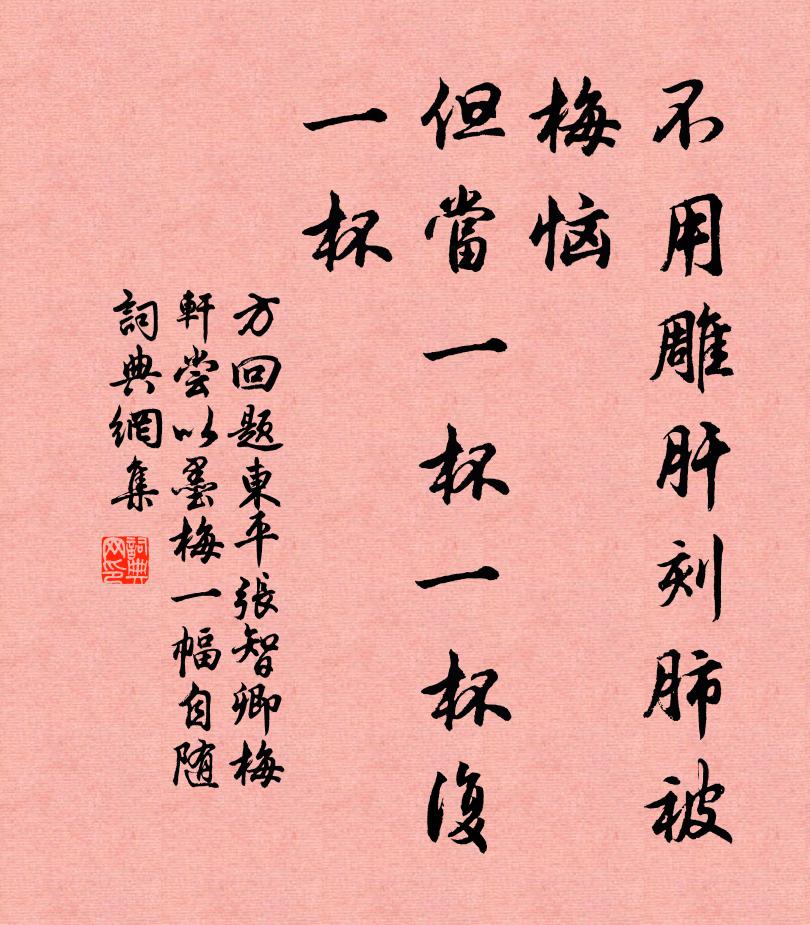 不用雕肝刻肺被
梅恼
但當一杯一杯復
一杯
方回题東平張智卿梅
軒嘗以墨梅一幅自随
詞典網集
詞典
网印